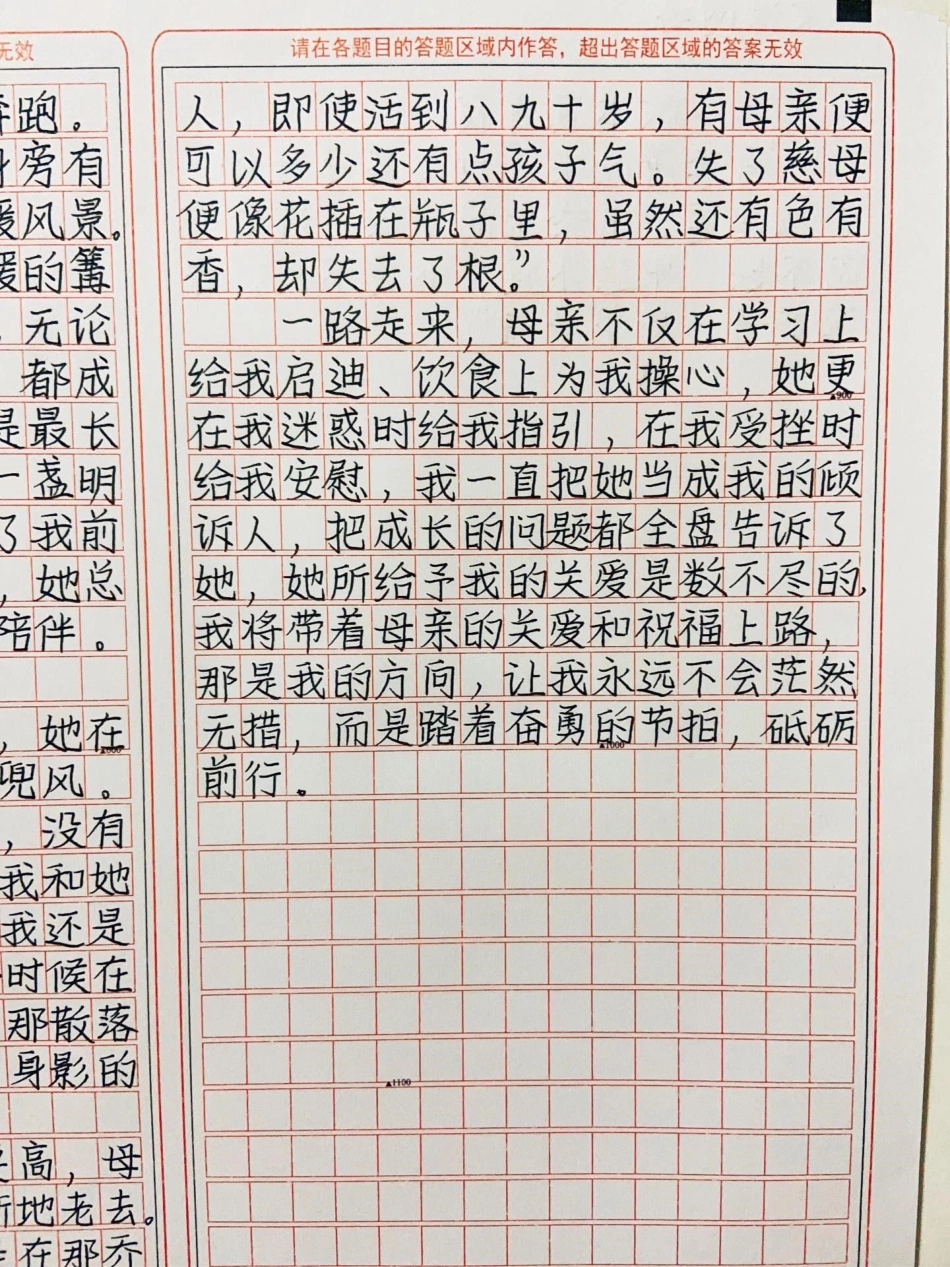 无效
奔跑。
身旁有
暖风景。
暖的篝
，无论
都成
是最长
一盏明
了我前
，她总
陪伴。
，她在
兜风。
，没有
我和她
我还是
时候在
那散落
身影的
高，母
地老去。
在那乔
请在各题目的答题区域内作答，超出答题区域的答案无效
人，即使活到八九十岁，有母亲便
可以多少还有点孩子气。失了慈母
便像花插在瓶子里，虽然还有色有
香，却失去了根。”
一路走来，母亲不仅在学习上
给我启迪、饮食上为我操心，她更
▲900
在我迷惑时给我指引，在我受挫时
给我安慰，我一直把她当成我的倾
诉人，把成长的问题都全盘告诉了
她，她所给予我的关爱是数不尽的，
我将带着母亲的关爱和祝福上路，
那是我的方向，让我永远不会茫然
无措，而是踏着奋勇的节拍，砥砺
▲1000
前行。
▲1100